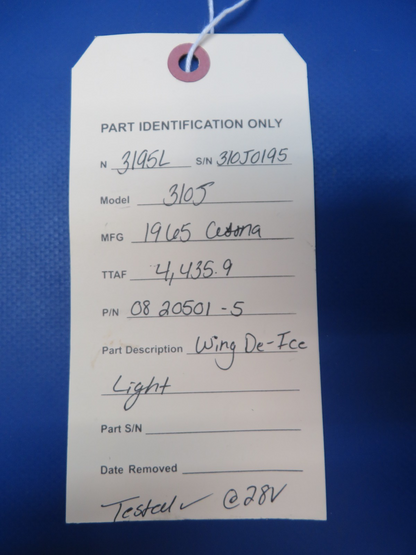 PART IDENTIFICATION ONLY
N 3195L S/N 310J0195
Model 310J
MFG 1965 Cessna
TTAF 4,435.9
P/N 08 20501 -5
Part Description Wing De-Ice
Light
Part S/N
Date Removed
Tested ✓ @ 28V